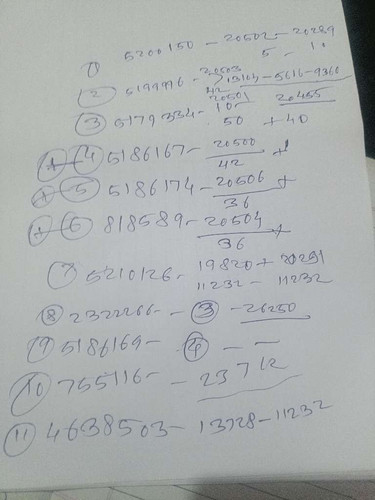 1) 5200150 - 20502 - 20289
5 - 10
2 5199996 - 20503 13104 - 5616 - 9360
42
3 5179334 - 20501 20455
10
50 + 40
4 5186167 - 20500 +
42
5 5186174 - 20506 +
36
6 818589 - 20504 +
36
7 5210126 - 19820 + 20291
11232 - 11232
8 2322266 - 3 - 26250
9 5186169 - 4 - -
10 755116 - - 23712
11 4638503 - 13728 - 11232